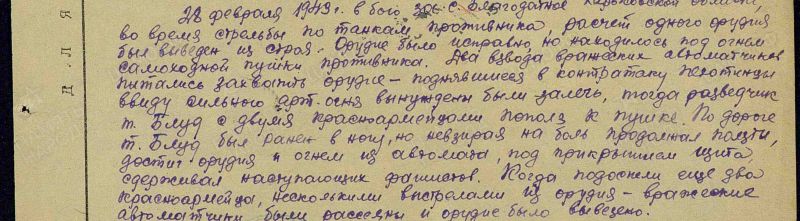 28 февраля 1943 г. в бою за с. Благодатное Харьковской области,
во время стрельбы по танкам противника, расчет одного орудия
был выведен из строя. Орудие было исправно, но находилось под огнем
самоходной пушки противника. Два взвода вражеских автоматчиков
пытались захватить орудие – поднявшиеся в контратаку пехотинцы
ввиду сильного арт. огня вынуждены были залечь, тогда разведчик
т. Блуд с двумя красноармейцами пополз к пушке. По дороге
т. Блуд был ранен в ногу, но невзирая на боль продолжал ползти,
достиг орудия и огнем из автомата, под прикрытием щита,
сдерживал наступающих фашистов. Когда подоспели еще два
красноармейца, несколькими выстрелами из орудия – вражеские
автоматчики были рассеяны и орудие было вывезено.
Для